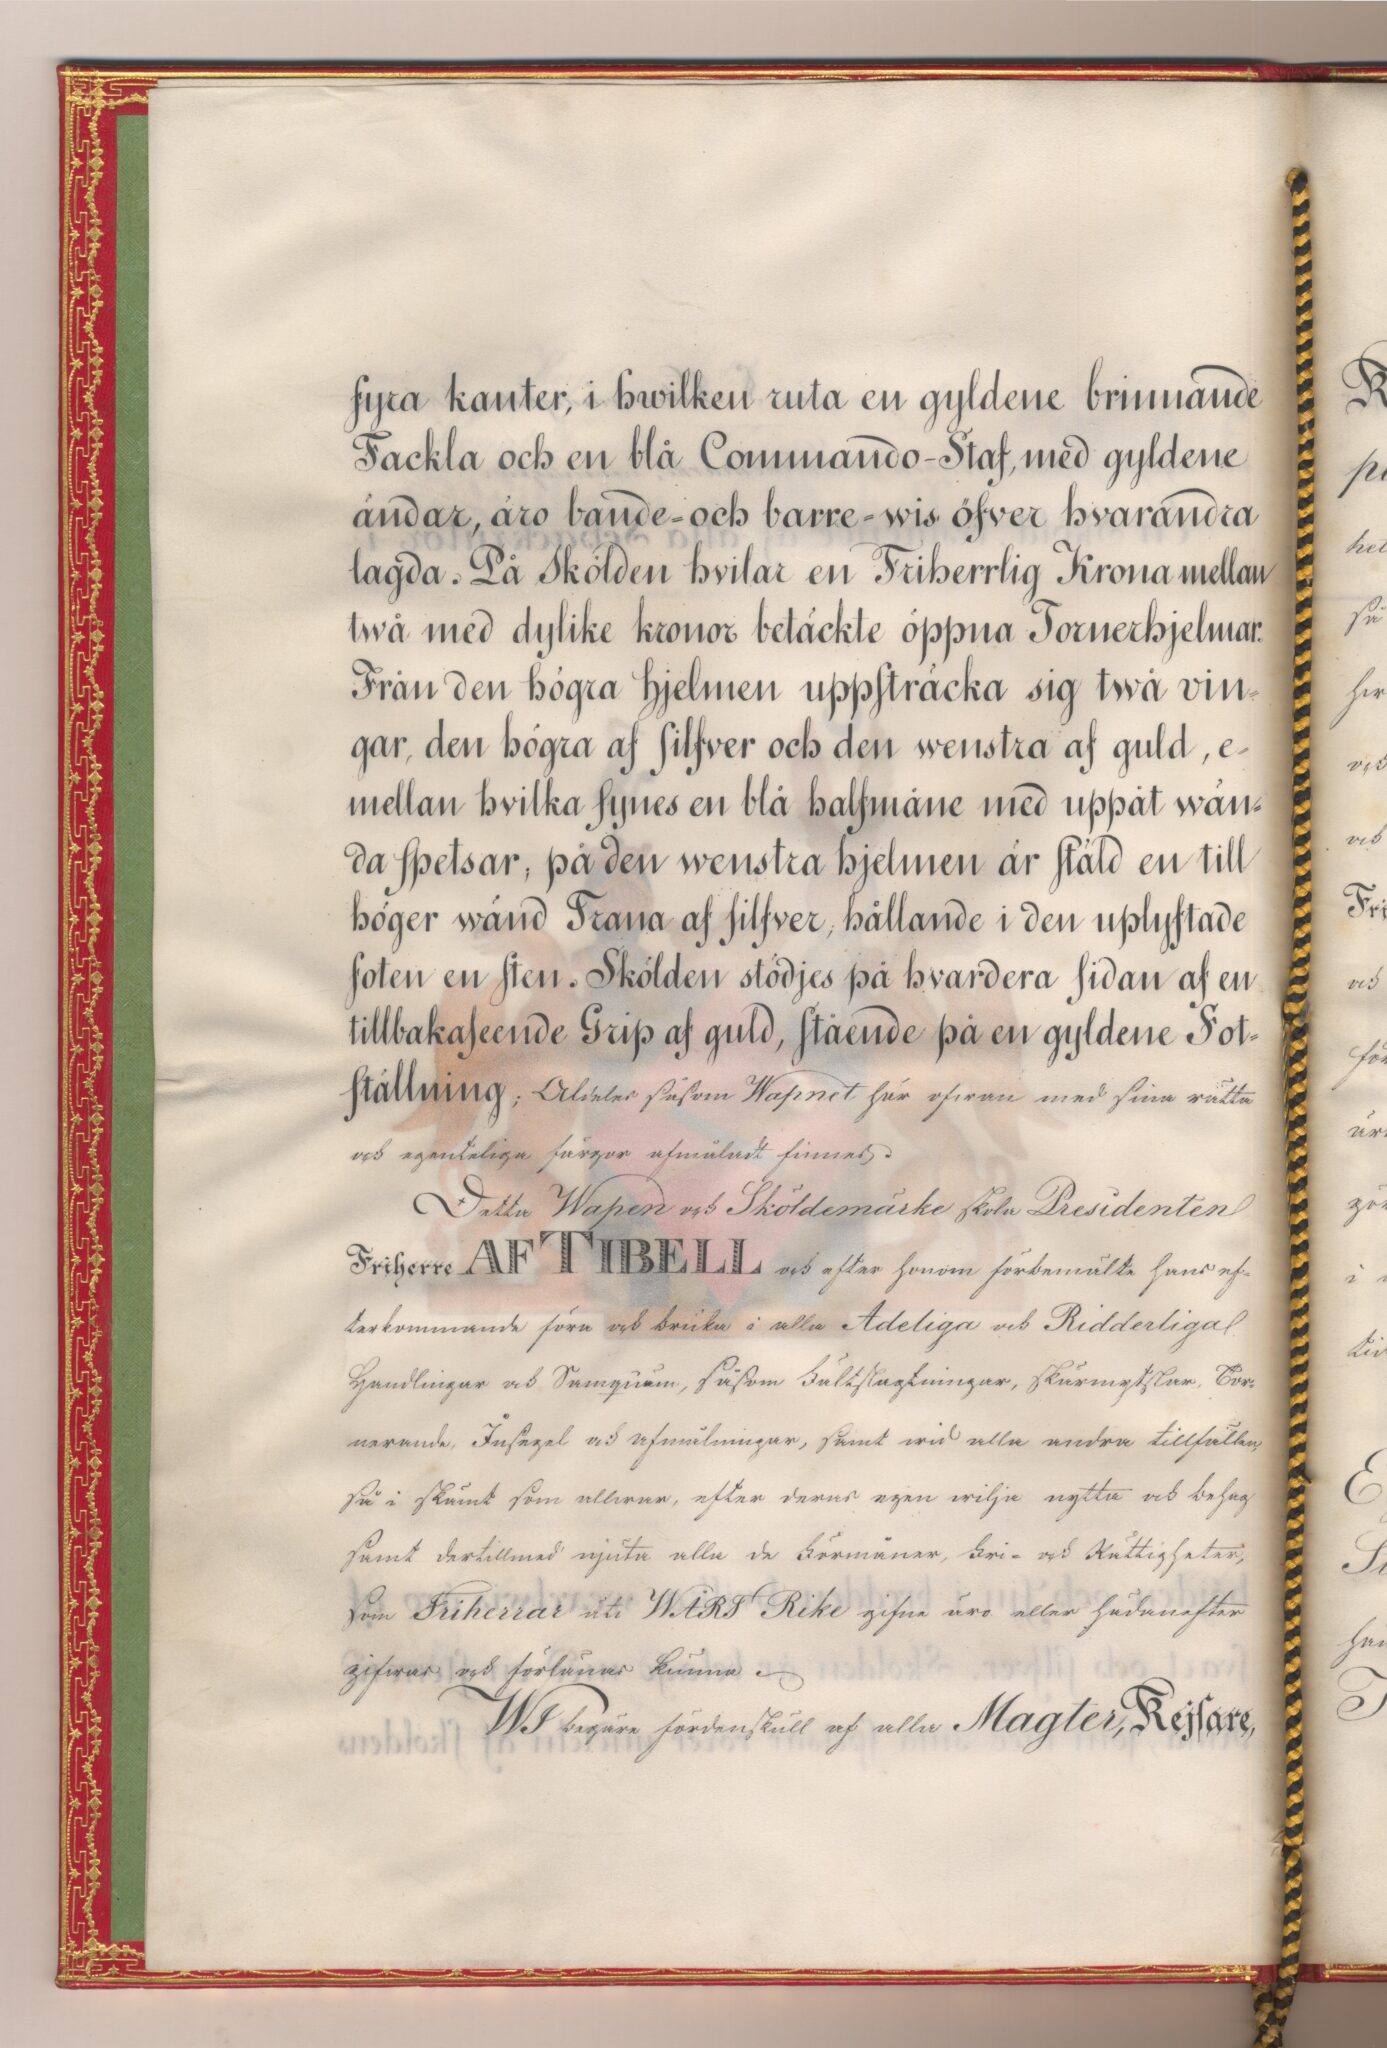 fyra kanter, i hwilken ruta en gyldene brinnande
Fackla och en blå Commando-Staf, med gyldene
ändar, äro bande-och barre-wis öfver hvarandra
lagda. På Skölden hvilar en Friherrlig Krona mellan
twå med dylike kronor betäckte öppna Tornerhjelmar.
Från den högra hjelmen uppsträcka sig twå vin-
gar, den högra af silfver och den wenstra af guld, e-
mellan hvilka synes en blå halfmåne med uppåt wän-
da spetsar; på den wenstra hjelmen är ståld en till
höger wänd Trana af silfver, hållande i den uplyftade
foten en sten. Skölden stödjes på hvardera sidan af en
tillbakaseende Grip af guld, stående på en gyldene Fot-
ställning; Aldeles såsom Wapnet här ofwan med sina rätta
och egenteliga färgor afmåladt finnes.
Detta Wapen och Sköldemärke skola Presidenten
Friherre AF TIBELL och efter honom förbemälte hans ef-
terkommande föra och bruka i alla Adeliga och Ridderliga
Handlingar och Samqwäm, såsom Fältslagtningar, skärmytslar, Tor-
nerande, Insegel och afmålningar, samt wid alla andra tillfällen,
så i skämt som allwar, efter deras egen wilja nytta och behag
samt dertillmed njuta alla de Förmåner, Fri- och Rättigheter,
som Friherrar uti WÅRT Rike gifne äro eller hädanefter
gifwas och förlänas kunna.
WI begäre fördenskull af alla Magter, Kejsare,
R
Fri